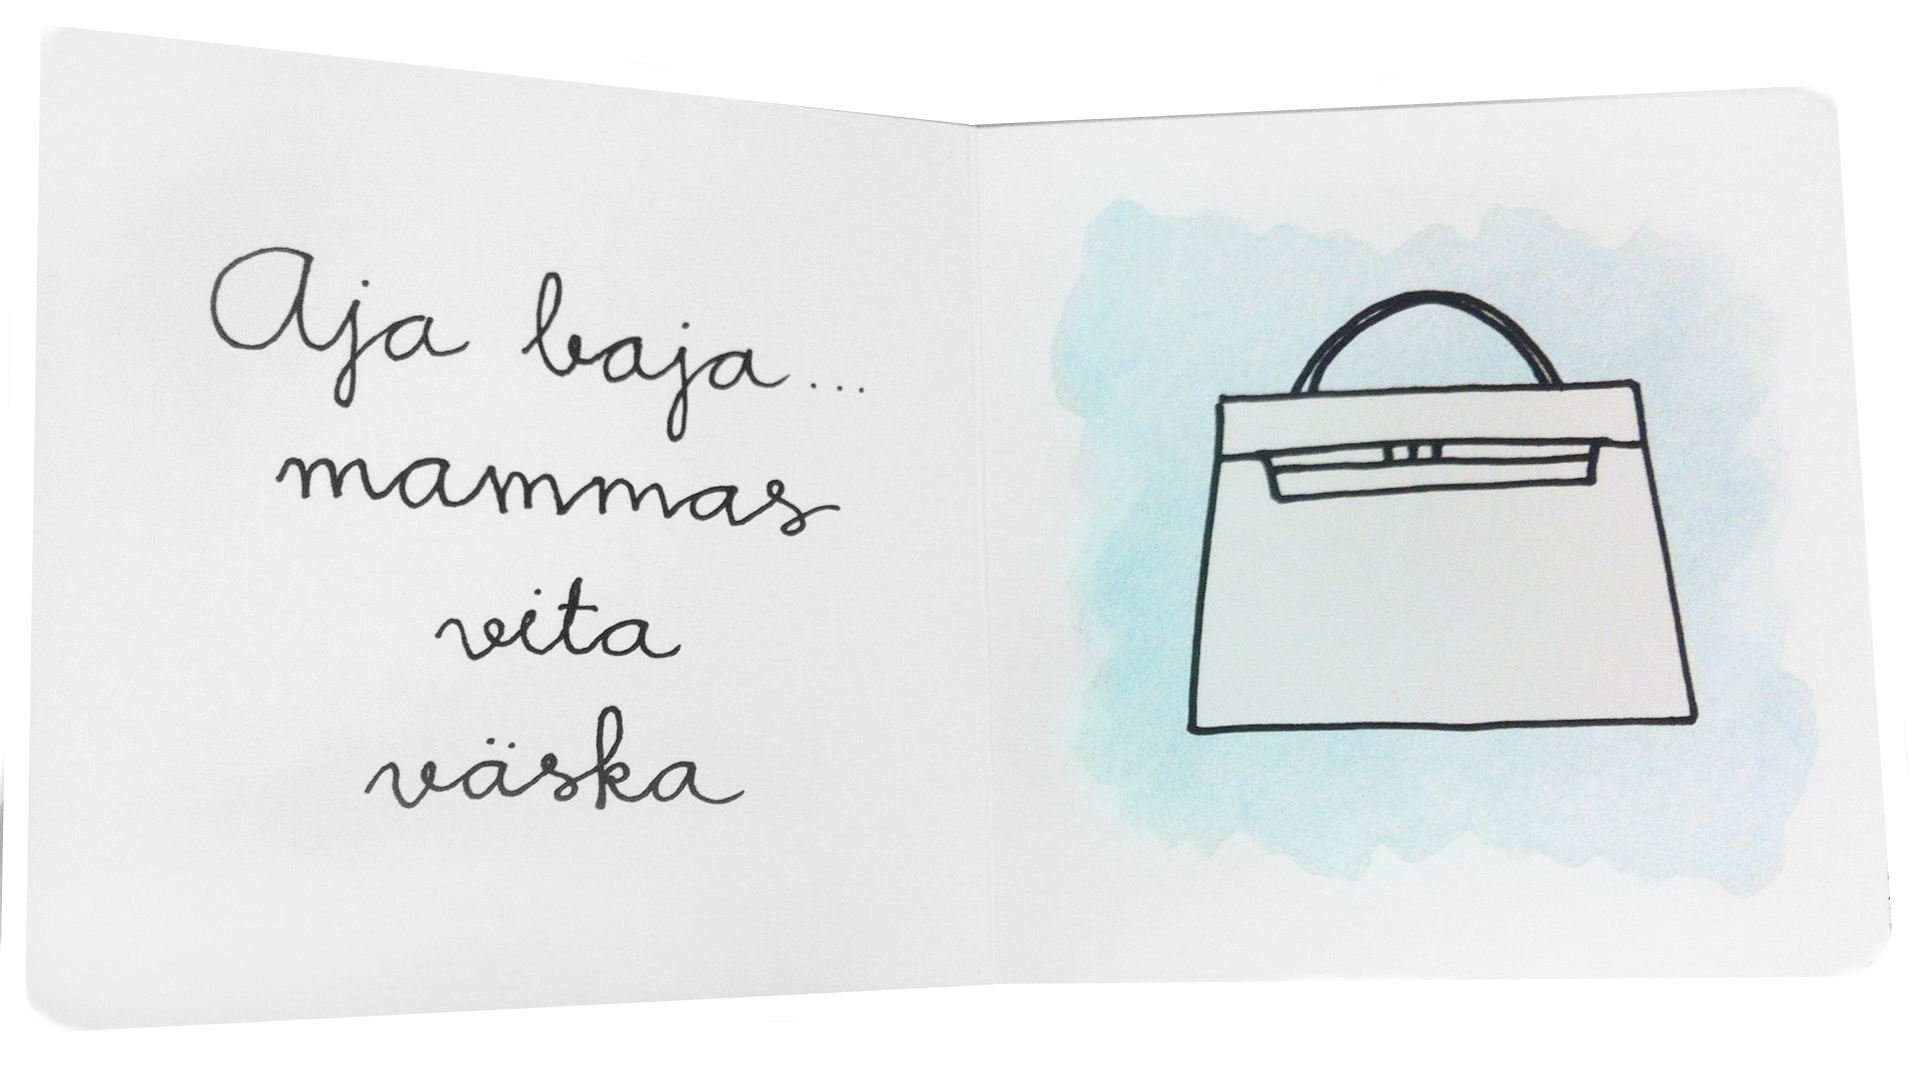 Aja baja...
mammas
vita
väska